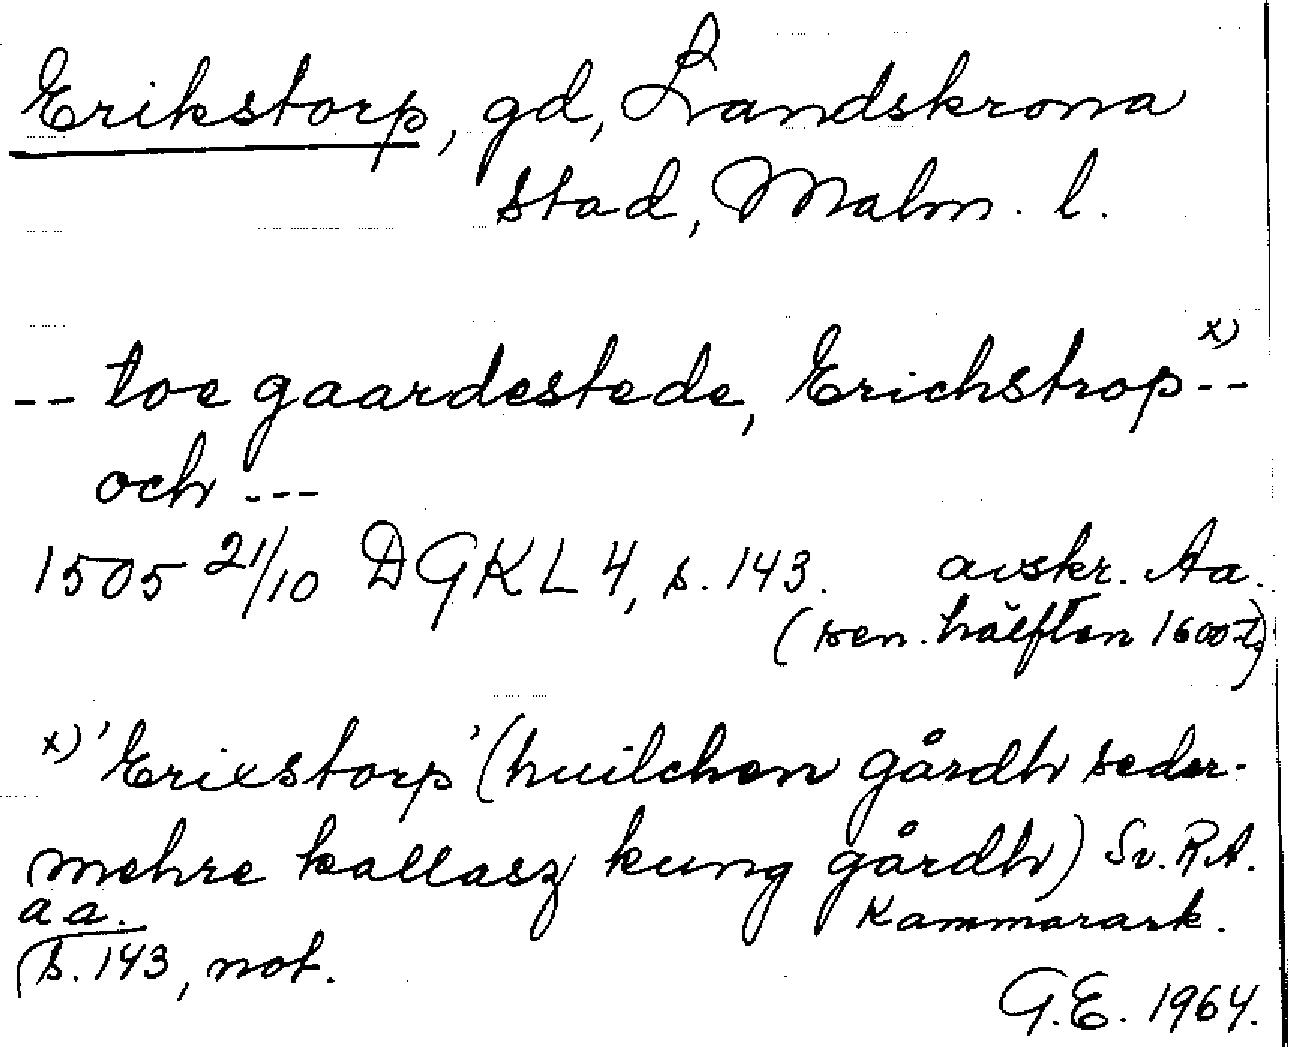 Erikstorp, gd, Landskrona
stad, Malm. l.
-- toe gaardestede, Erichstrop x) --
och ---
1505 21/10 DGKL 4, s. 143. avskr. Aa.
(sen. hälften 1600-t.)
x) 'Erixstorp' (huilchen gårdh seder-
mehre kallasz kung gårdh) Sv. R.A.
a a. Kammarark.
s. 143, not.
G.E. 1964.